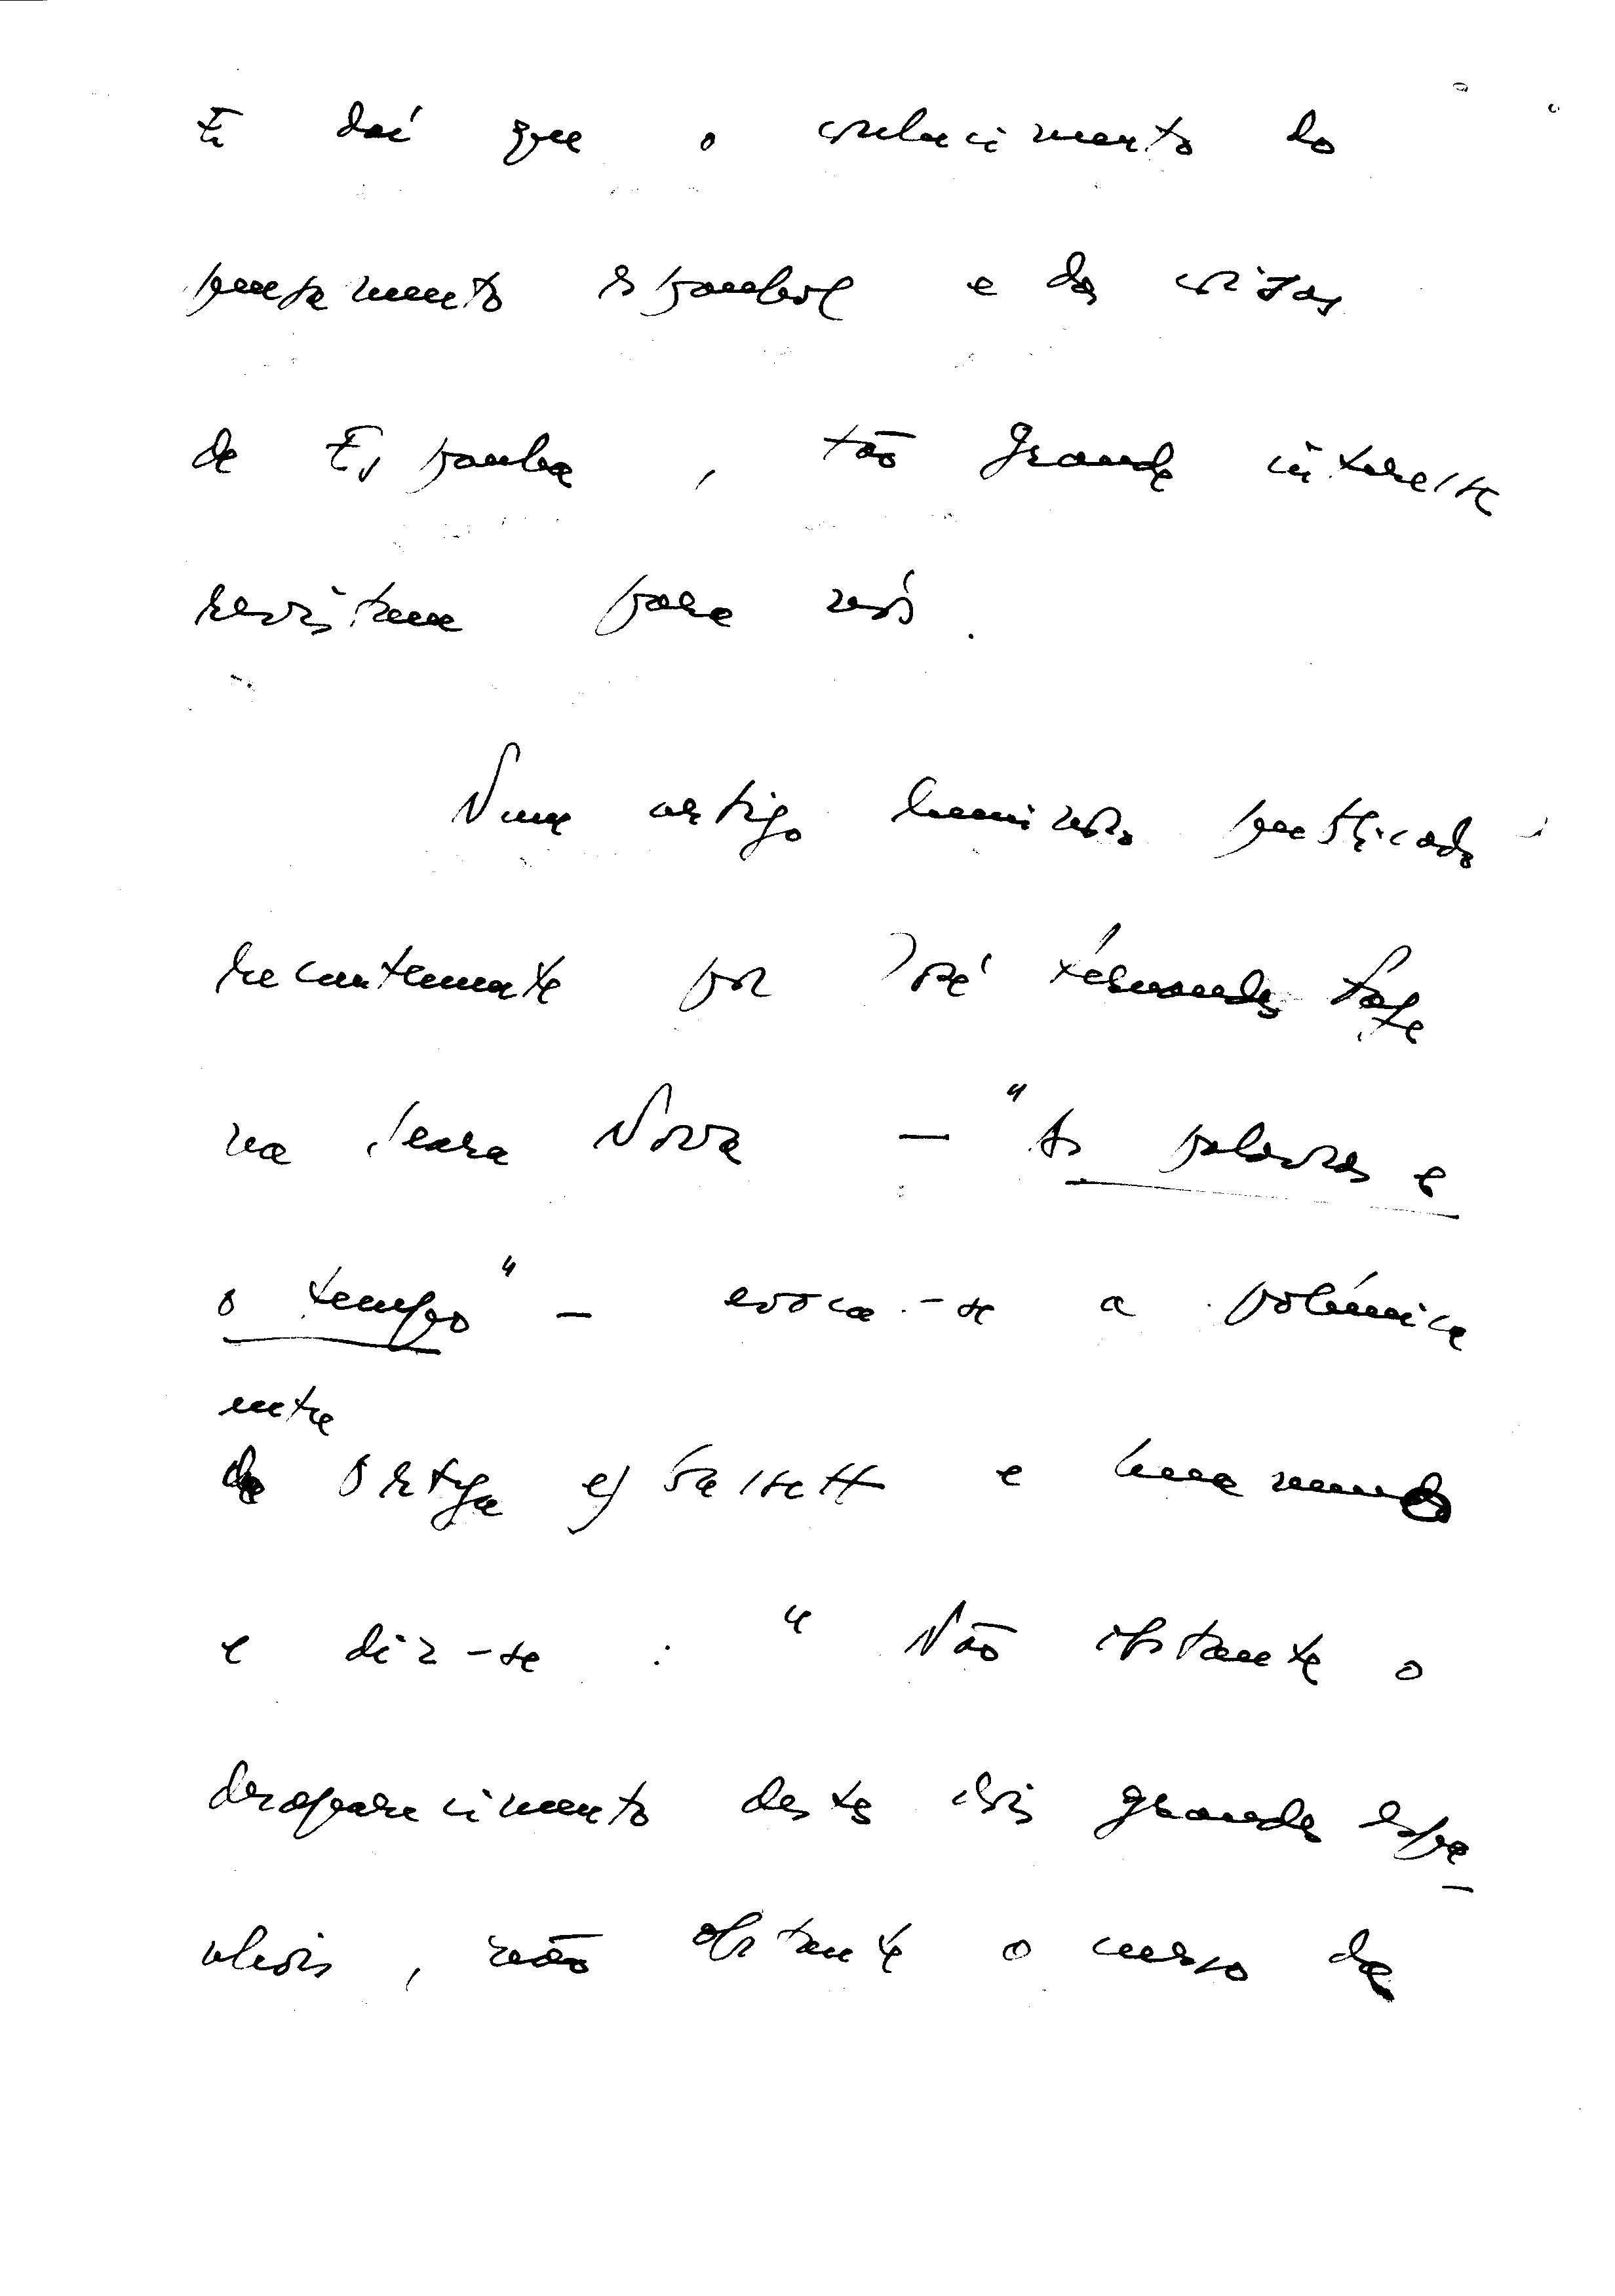 E daí que o conhecimento do
pensamento espanhol e das coisas
de Espanha, tão grande interesse
revistam para nós.
Num artigo luminoso publicado
recentemente por José Fernandes Fafe
na Seara Nova — "As palavras e
o tempo" — evoca-se a polémica
entre
de Ortega y Gasset e Unamuno
e diz-se : "Não obstante o
desaparecimento destes dois grandes espa-
nhois, não obstante o curso da